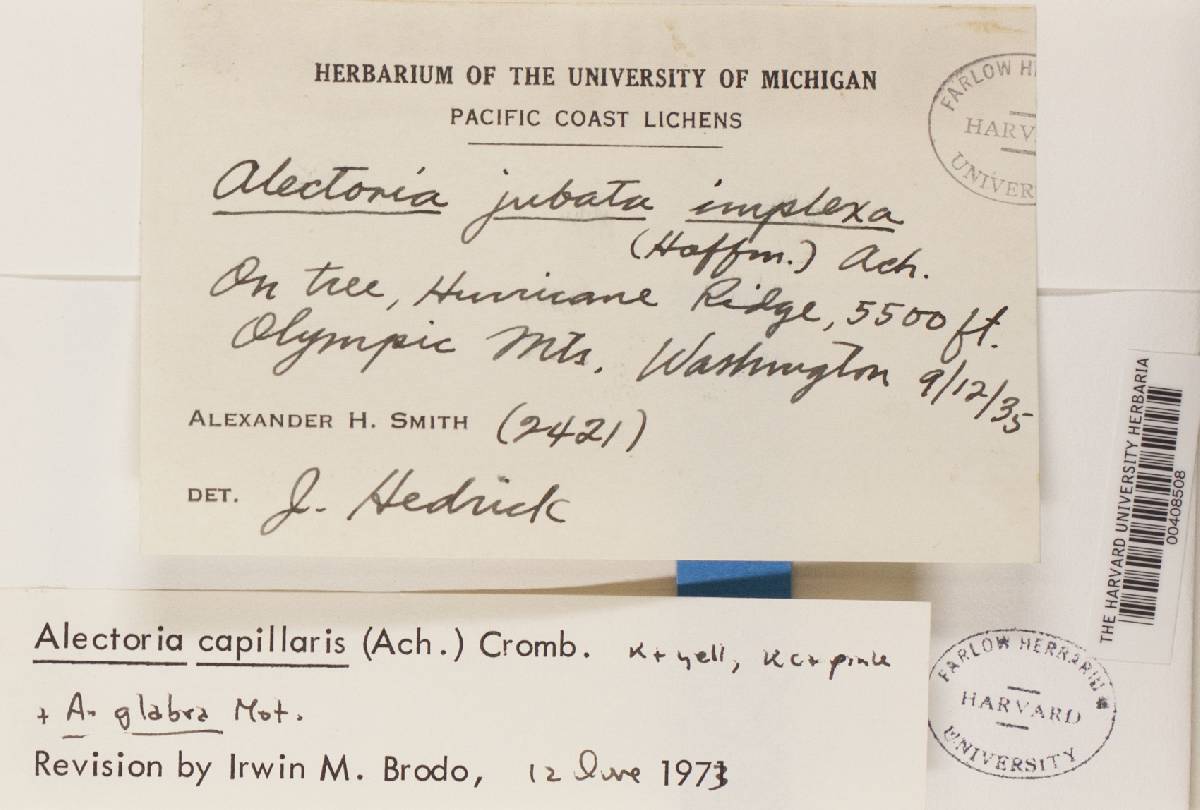 HERBARIUM OF THE UNIVERSITY OF MICHIGAN
PACIFIC COAST LICHENS
Alectoria jubata implexa
(Hoffm.) Ach.
On tree, Hurricane Ridge, 5500 ft.
Olympic Mts. Washington 9/12/35
ALEXANDER H. SMITH (2421)
DET. J. Hedrick
FARLOW H
HARV
UNIVER
THE HARVARD UNIVERSITY HERBARIA
00408508
Alectoria capillaris (Ach.) Cromb. K+ yell, KC+ pink
+ A. glabra Mot.
Revision by Irwin M. Brodo, 12 June 1973
FARLOW HERBARIUM
HARVARD
UNIVERSITY